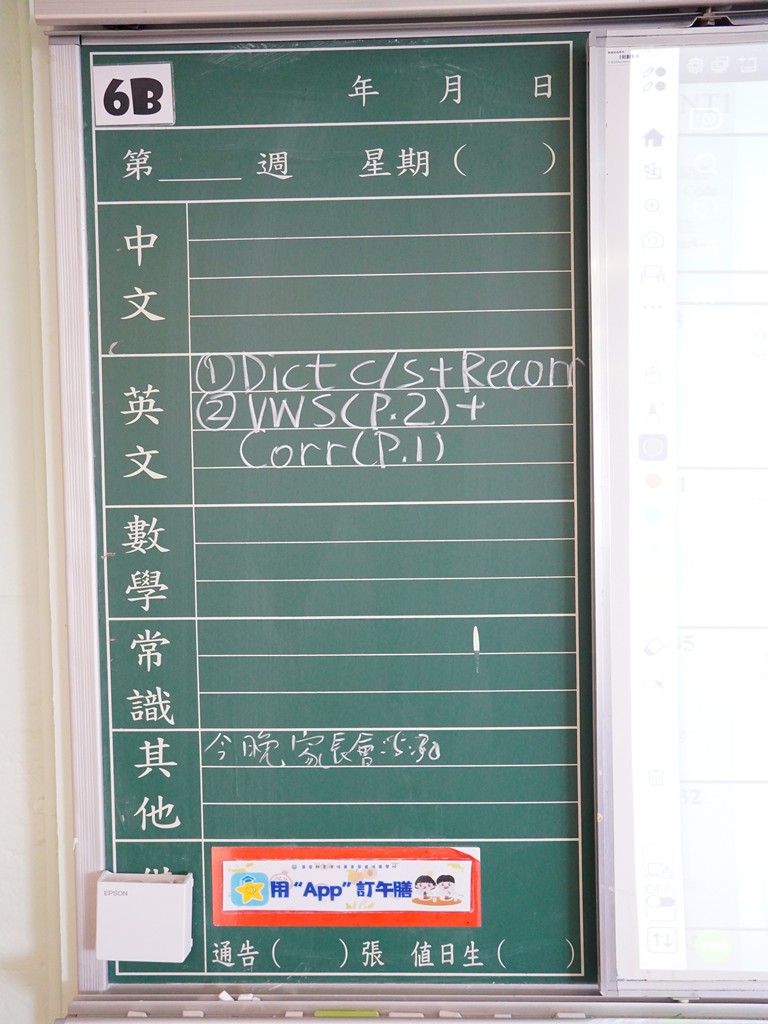 6B
年 月 日
第____週 星期( )
中文
英文
① Dict c/s + Recorr
② VWS (P.2) +
Corr (P.1)
數學
常識
其他
今晚家長會
EPSON
用 “App” 訂午膳
通告( )張 值日生( )